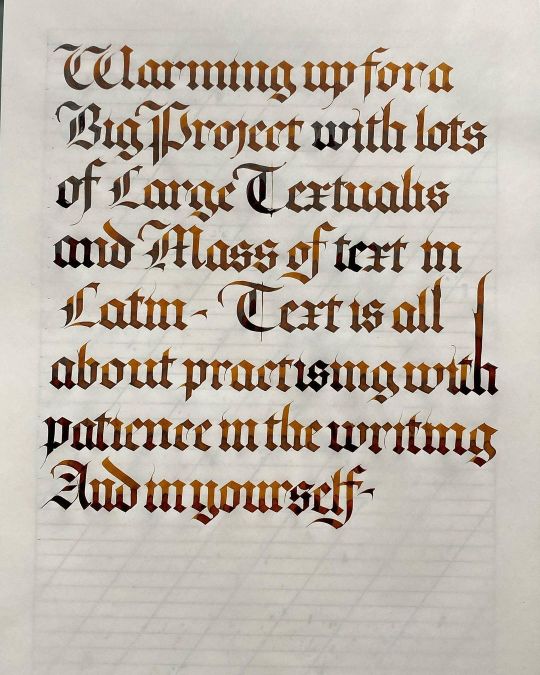 Warming up for a
Big Project with lots
of Large Textualis
and Mass of text in
Latin- Text is all
about practising with
patience in the writing
And in yourself-